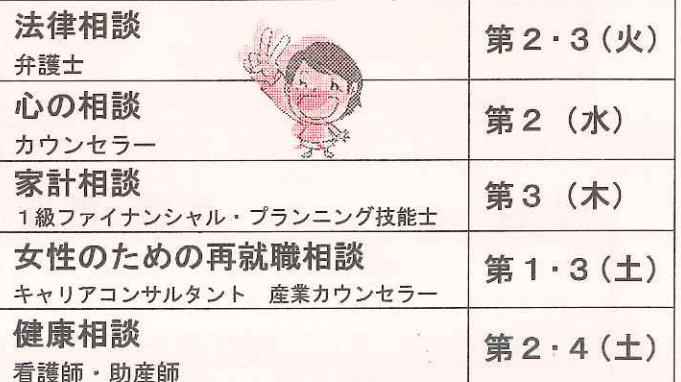 法律相談
弁護士
第２・３（火）
心の相談
カウンセラー
第２（水）
家計相談
１級ファイナンシャル・プランニング技能士
第３（木）
女性のための再就職相談
キャリアコンサルタント　産業カウンセラー
第１・３（土）
健康相談
看護師・助産師
第２・４（土）